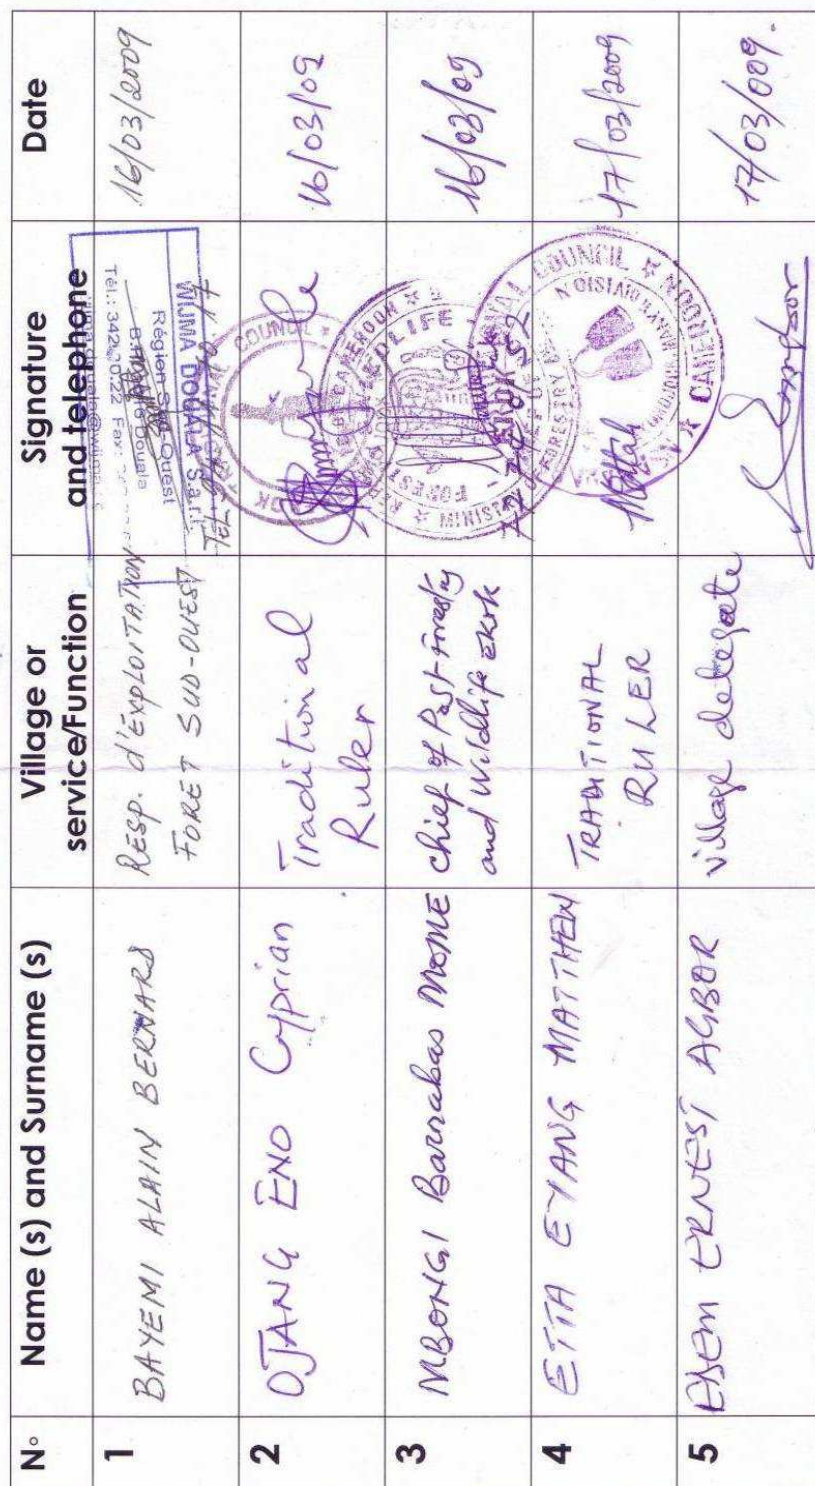 N° Name (s) and Surname (s) Village or service/Function Signature and telephone Date
1 BAYEMI ALAIN BERNARD RESP. d'EXPLOITATION FORET SUD-OUEST 16/03/2009
WIJMA DOUALA Sarl
Région Sud-Ouest
Douala
Tél.: 342
Fax:
2 OJANG ENO Cyprian Traditional Ruler 16/03/09
COUNCIL
3 MBONGI Barrabas MOME chief of Post forestry and Wildlife ekok 16/03/09
CAMEROON
WILDLIFE
FORESTRY
4 ETTA EYANG MATTHEW TRADITIONAL RULER 17/03/2009
COUNCIL
MANYU DIVISION
CAMEROON
5 EBEM ERNEST AGBOR village delegate 17/03/009.